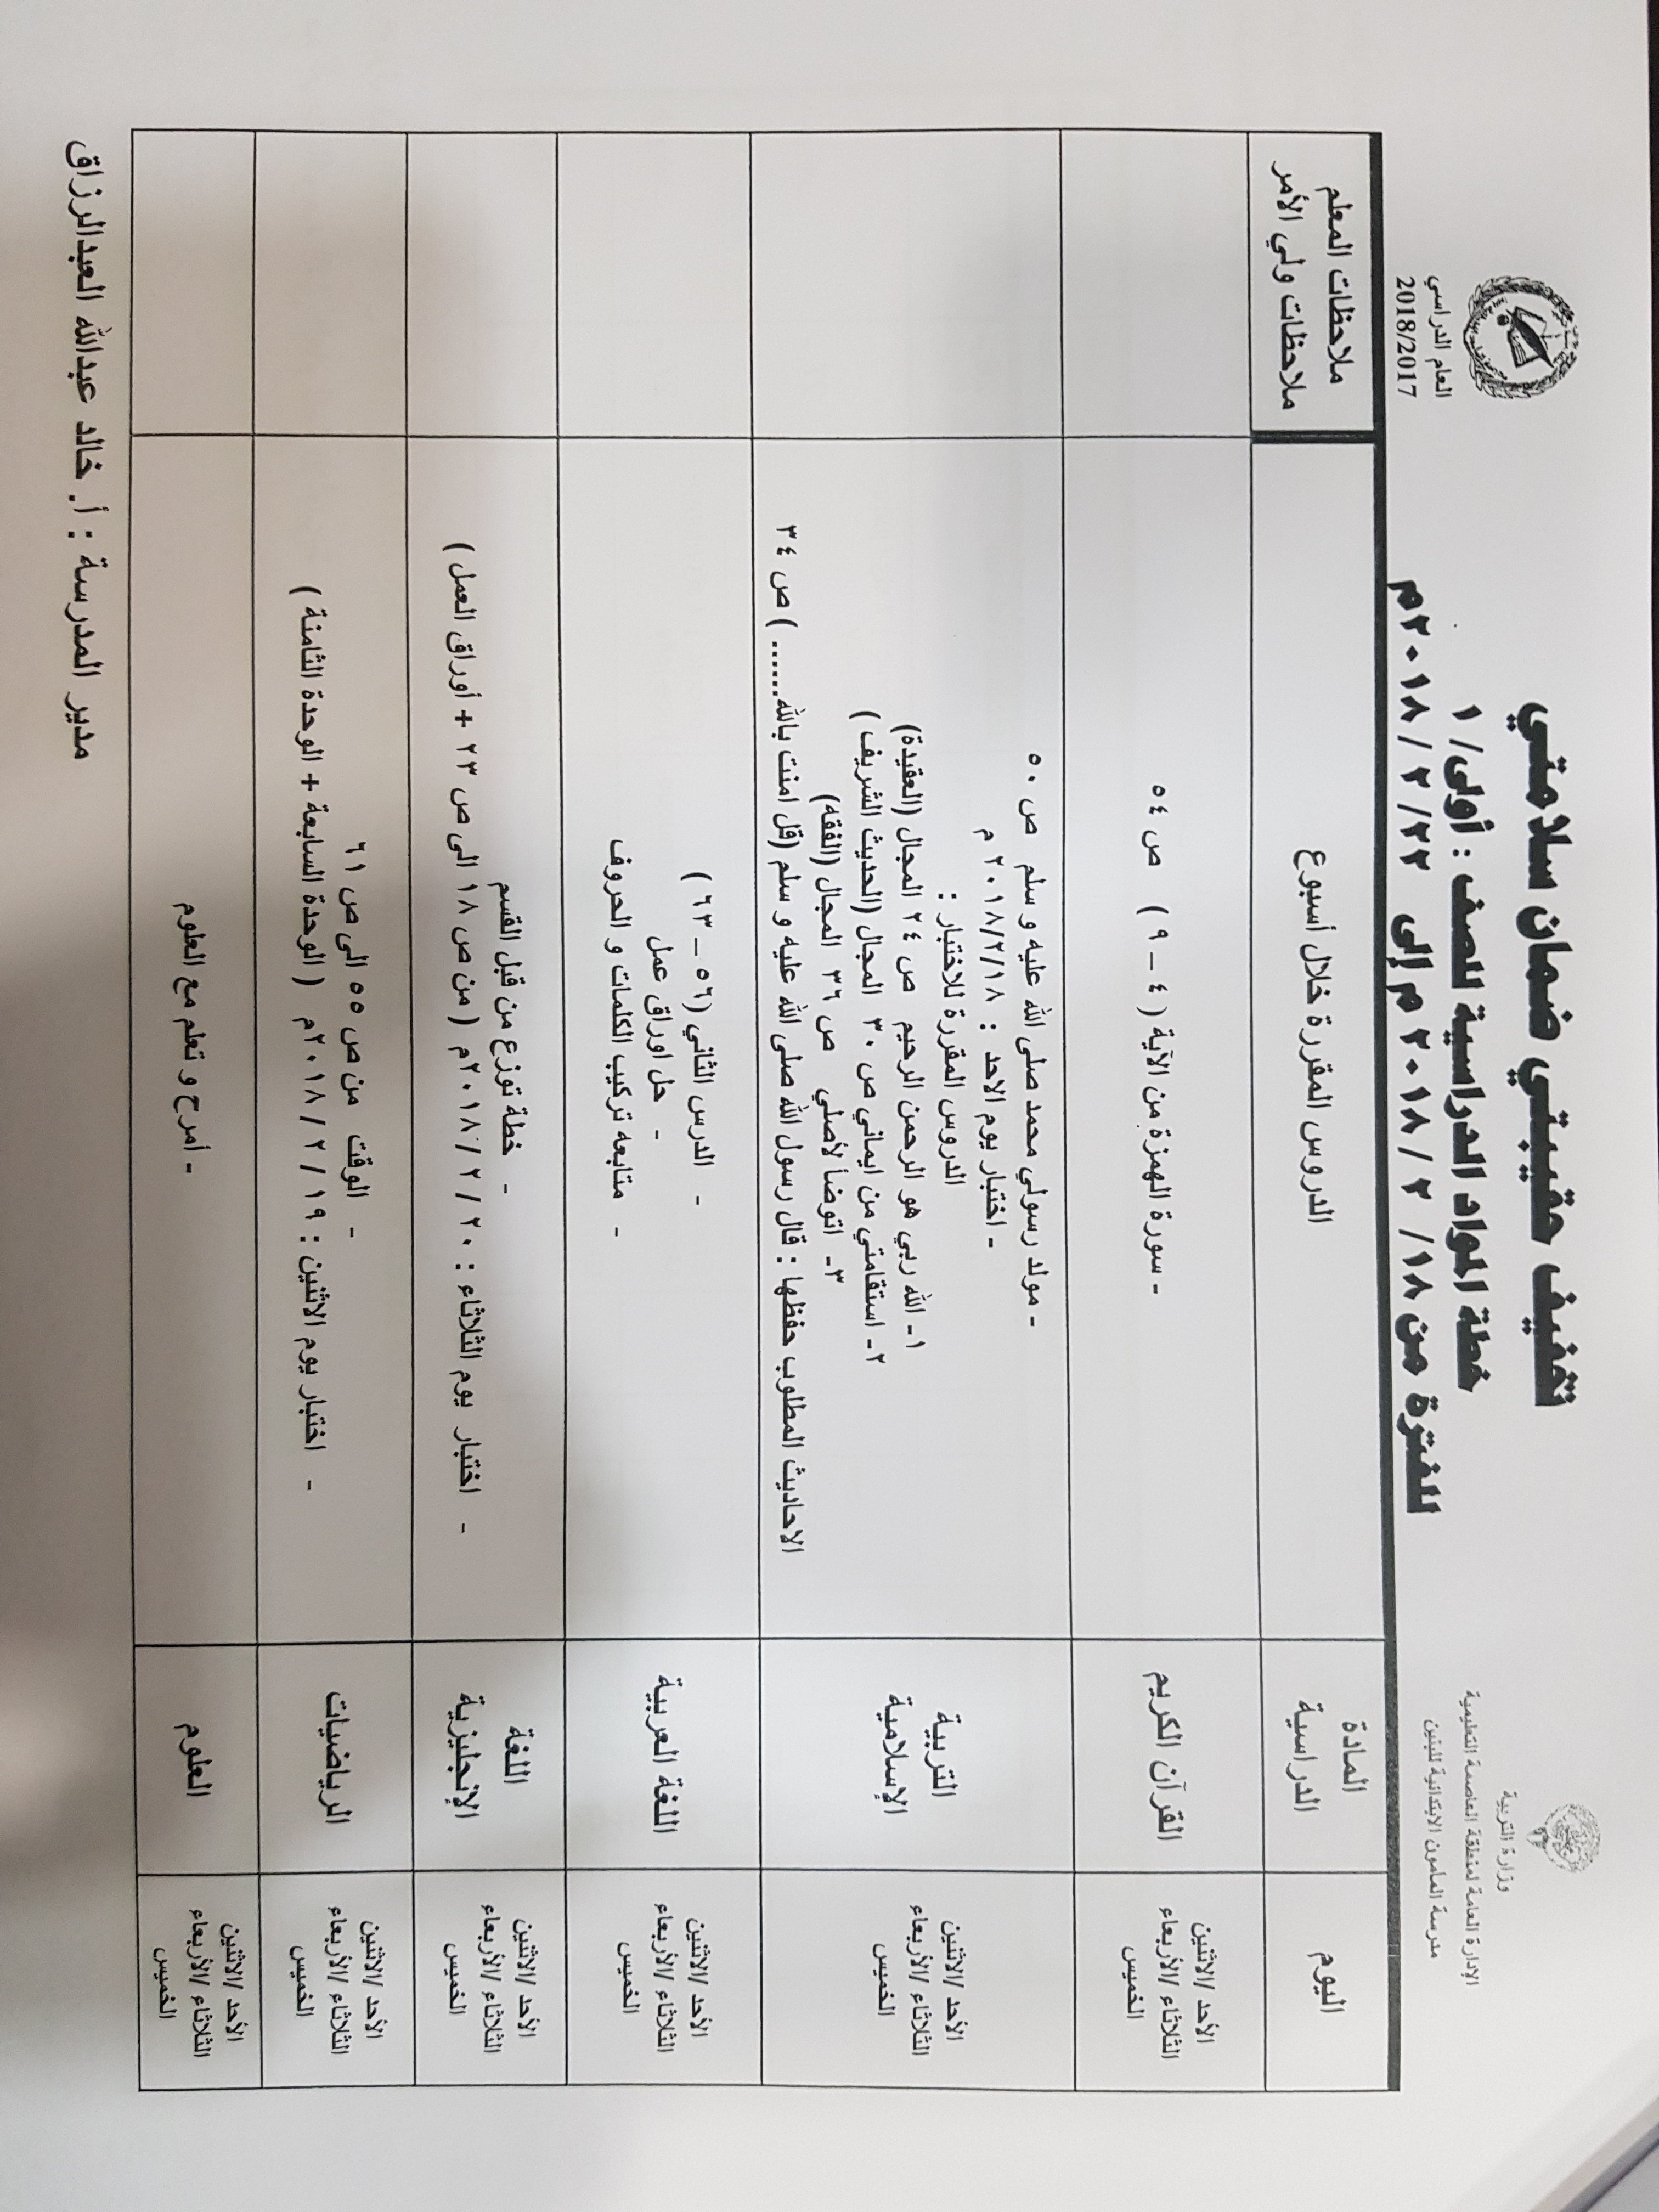 وزارة التربية
الإدارة العامة لمنطقة العاصمة التعليمية
مدرسة المامون الابتدائية للبنين
تخفيف حقيبتي ضمان سلامتي
خطة المواد الدراسية للصف : أولى/ ١
للفترة من ١٨/ ٢ / ٢٠١٨ م إلى ٢٢/ ٢ / ٢٠١٨م
العام الدراسي
2018/2017
اليوم
المادة
الدراسية
الدروس المقررة خلال أسبوع
ملاحظات المعلم
ملاحظات ولي الأمر
الأحد /الاثنين
الثلاثاء /الأربعاء
الخميس
القرآن الكريم
- سورة الهمزة من الآية ( ٤ – ٩ ) ص ٥٤
الأحد /الاثنين
الثلاثاء /الأربعاء
الخميس
التربية
الإسلامية
- مولد رسولي محمد صلى الله عليه و سلم ص ٥٠
- اختبار يوم الاحد : ٢٠١٨/٢/١٨ م
الدروس المقررة للاختبار :
١- الله ربي هو الرحمن الرحيم ص ٢٤ المجال (العقيدة)
٢- استقامتي من ايماني ص ٣٠ المجال (الحديث الشريف )
٣- اتوضأ لأصلي ص ٣٦ المجال (الفقه)
الاحاديث المطلوب حفظها : قال رسول الله صلى الله عليه و سلم (قل امنت بالله...... ) ص ٣٤
الأحد /الاثنين
الثلاثاء /الأربعاء
الخميس
اللغة العربية
- الدرس الثاني (٥٦ – ٦٣ )
- حل اوراق عمل
- متابعه تركيب الكلمات و الحروف
الأحد /الاثنين
الثلاثاء /الأربعاء
الخميس
اللغة
الإنجليزية
- خطة توزع من قبل القسم
- اختبار يوم الثلاثاء : ٢٠ / ٢ / ٢٠١٨م ( من ص ١٨ الى ص ٢٣ + أوراق العمل )
الأحد /الاثنين
الثلاثاء /الأربعاء
الخميس
الرياضيات
- الوقت من ص ٥٥ الى ص ٦١
- اختبار يوم الاثنين : ١٩ / ٢ / ٢٠١٨م ( الوحدة السابعة + الوحدة الثامنة )
الأحد /الاثنين
الثلاثاء /الأربعاء
الخميس
العلوم
- أمرح و تعلم مع العلوم
مدير المدرسة : أ. خالد عبدالله العبدالرزاق